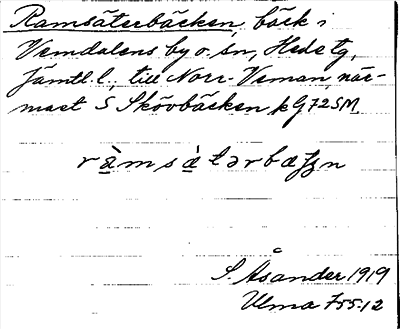 Ramsäterbäcken, bäck i
Vemdalens by o. sn, Hede tg,
Jämtl. l., till Norr-Veman, när-
mast S Skövbäcken på G 72 SM.
S. Åsander 1919
Ulma 755:12